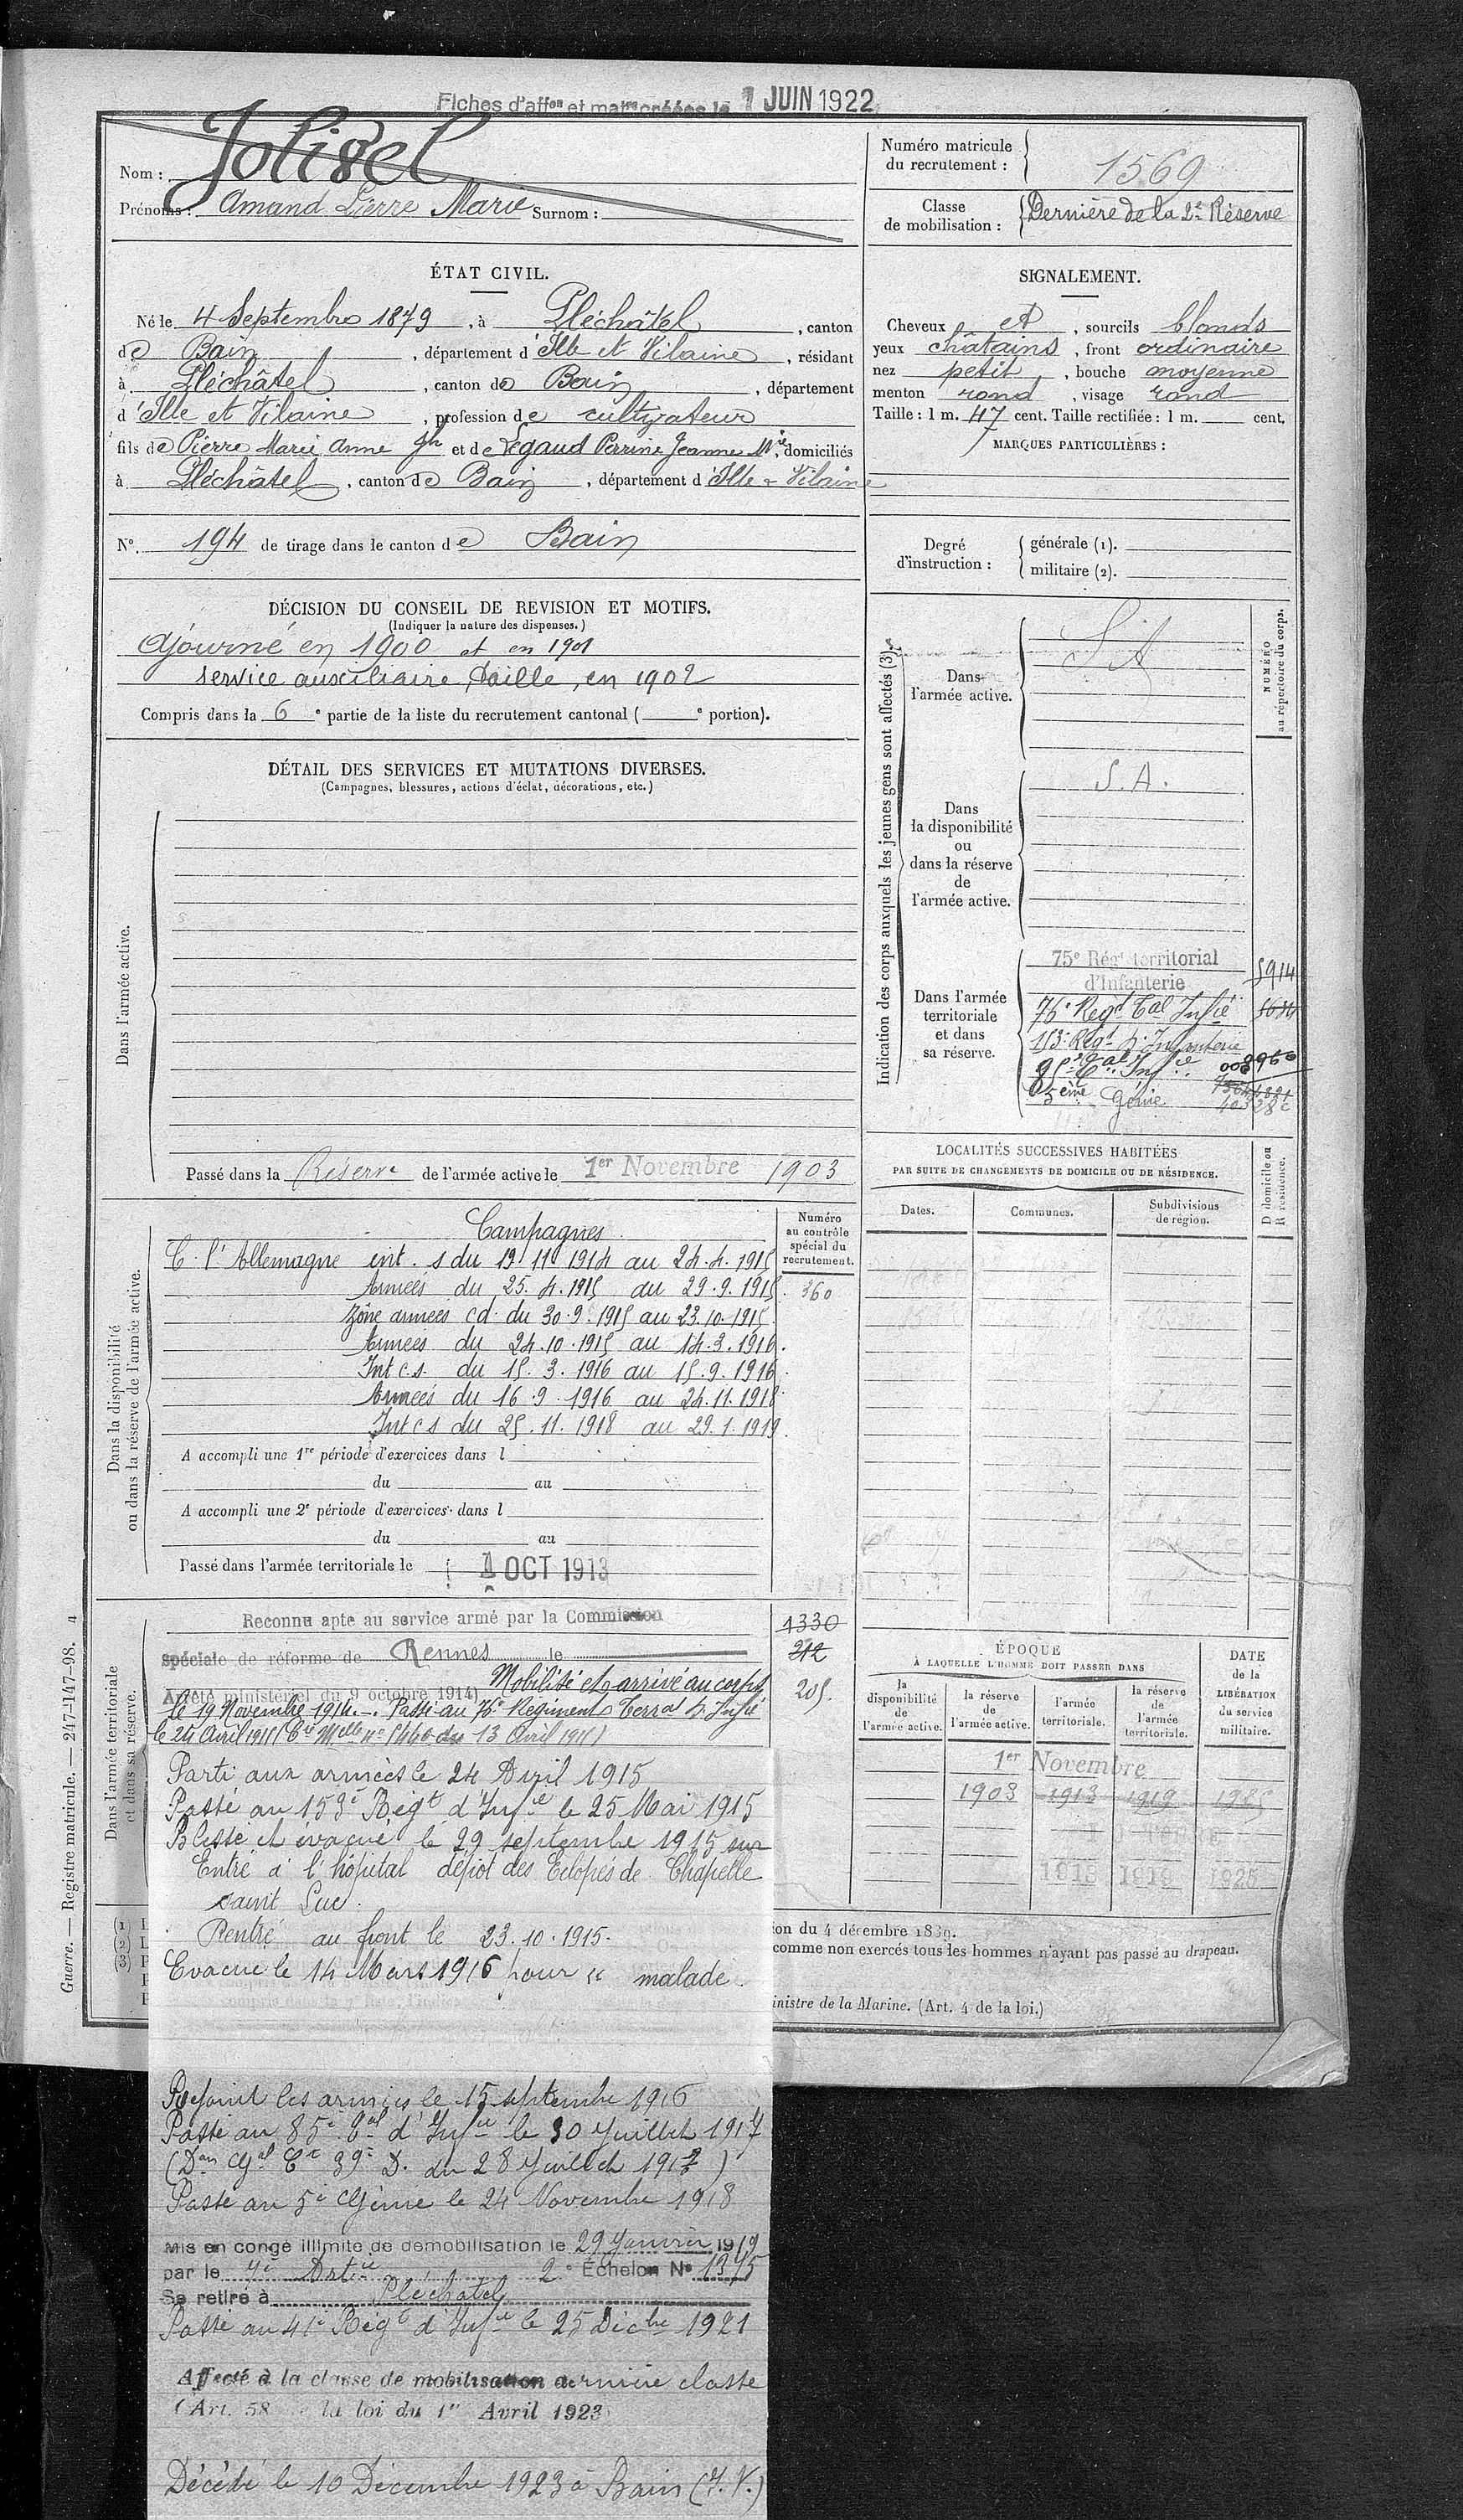 Fiches d'affon et matres créées le 1 JUIN 1922
Nom : Jolivel
Prénoms : Amand Pierre Marie Surnom :
Numéro matricule du recrutement : 1569
Classe de mobilisation : Dernière de la 2e Réserve
ÉTAT CIVIL.
Né le 4 Septembre 1879, à Pléchâtel, canton
de Bain, département d'Ille et Vilaine, résidant
à Pléchâtel, canton de Bain, département
d'Ille et Vilaine, profession de cultivateur
fils de Pierre Marie Anne Jh et de Legaud Perrine Jeanne Mie, domiciliés
à Pléchâtel, canton de Bain, département d'Ille & Vilaine
No. 194 de tirage dans le canton de Bain
SIGNALEMENT.
Cheveux et, sourcils blonds
yeux châtains, front ordinaire
nez petit, bouche moyenne
menton rond, visage rond
Taille : 1 m. 47 cent. Taille rectifiée : 1 m. cent.
MARQUES PARTICULIÈRES :
Degré d'instruction :
générale (1).
militaire (2).
DÉCISION DU CONSEIL DE REVISION ET MOTIFS.
(Indiquer la nature des dispenses.)
Ajourné en 1900 et en 1901
service auxiliaire, taille, en 1902
Compris dans la 6e partie de la liste du recrutement cantonal ( e portion).
DÉTAIL DES SERVICES ET MUTATIONS DIVERSES.
(Campagnes, blessures, actions d'éclat, décorations, etc.)
Dans l'armée active.
Passé dans la Réserve de l'armée active le 1er Novembre 1903
Indication des corps auxquels les jeunes gens sont affectés (3).
NUMÉRO au répertoire du corps.
Dans l'armée active. S A
Dans la disponibilité ou dans la réserve de l'armée active. S. A.
Dans l'armée territoriale et dans sa réserve.
75e Régt territorial d'Infanterie 5914
76e Regt Tal Infie
113e Regt d'Infanterie
85e Tal Infie
5ème Génie
LOCALITÉS SUCCESSIVES HABITÉES
PAR SUITE DE CHANGEMENTS DE DOMICILE OU DE RÉSIDENCE.
Dates. Communes. Subdivisions de région. D domicile ou R résidence.
Dans la disponibilité ou dans la réserve de l'armée active.
Numéro au contrôle spécial du recrutement.
360
Campagnes
C. l'Allemagne int. s du 19 11 1914 au 24.4.1915
Armées du 25.4.1915 au 29.9.1915.
Zône armées cd. du 30.9.1915 au 23.10.1915.
Armées du 24.10.1915 au 14.3.1916.
Int c.s. du 15.3.1916 au 15.9.1916.
Armées du 16.9.1916 au 24.11.1918
Int c s du 25.11.1918 au 29.1.1919.
A accompli une 1re période d'exercices dans l
du au
A accompli une 2e période d'exercices dans l
du au
Passé dans l'armée territoriale le 1 OCT 1913
Dans l'armée territoriale et dans sa réserve.
1330
212
205.
Reconnu apte au service armé par la Commission
spéciale de réforme de Rennes le
Arrêté ministériel du 9 octobre 1914) Mobilisé et arrivé au corps
le 19 Novembre 1914. Passé au 76e Regiment Terral d'Infie
le 24 Avril 1915 (Cre Melle no 5440 du 13 Avril 1915)
Parti aux armées le 24 Avril 1915
Passé au 153e Régt d'Infie le 25 Mai 1915
Blessé et évacué le 29 septembre 1915 sur
Entré à l'hôpital dépôt des Eclopés de Chapelle
saint Luc.
Rentré au front le 23.10.1915.
Evacué le 14 Mars 1916 pour " malade.
Rejoint les armées le 15 septembre 1916
Passé au 85e Tal d'Infie le 30 Juillet 1917
(Don Gal Ct 39e D. du 28 Juillet 1917)
Passé au 5e Génie le 24 Novembre 1918
Mis en congé illimité de démobilisation le 29 Janvier 1919
par le 7e Artie 2e Échelon No 1375
Se retire à Pléchatel
Passé au 41e Régt d'Infie le 25 Décbre 1921
Affecté à la classe de mobilisation dernière classe
(Art. 58 de la loi du 1er Avril 1923)
Décédé le 10 Décembre 1923 à Bain (I. V.)
ÉPOQUE
À LAQUELLE L'HOMME DOIT PASSER DANS
la disponibilité de l'armée active. la réserve de l'armée active. l'armée territoriale. la réserve de l'armée territoriale.
DATE de la LIBÉRATION du service militaire.
1er Novembre
1903 1913 1919 1925
1913 1919 1925
ion du 4 décembre 1889.
comme non exercés tous les hommes n'ayant pas passé au drapeau.
inistre de la Marine. (Art. 4 de la loi.)
Guerre. — Registre matricule. — 247-147-98. 4